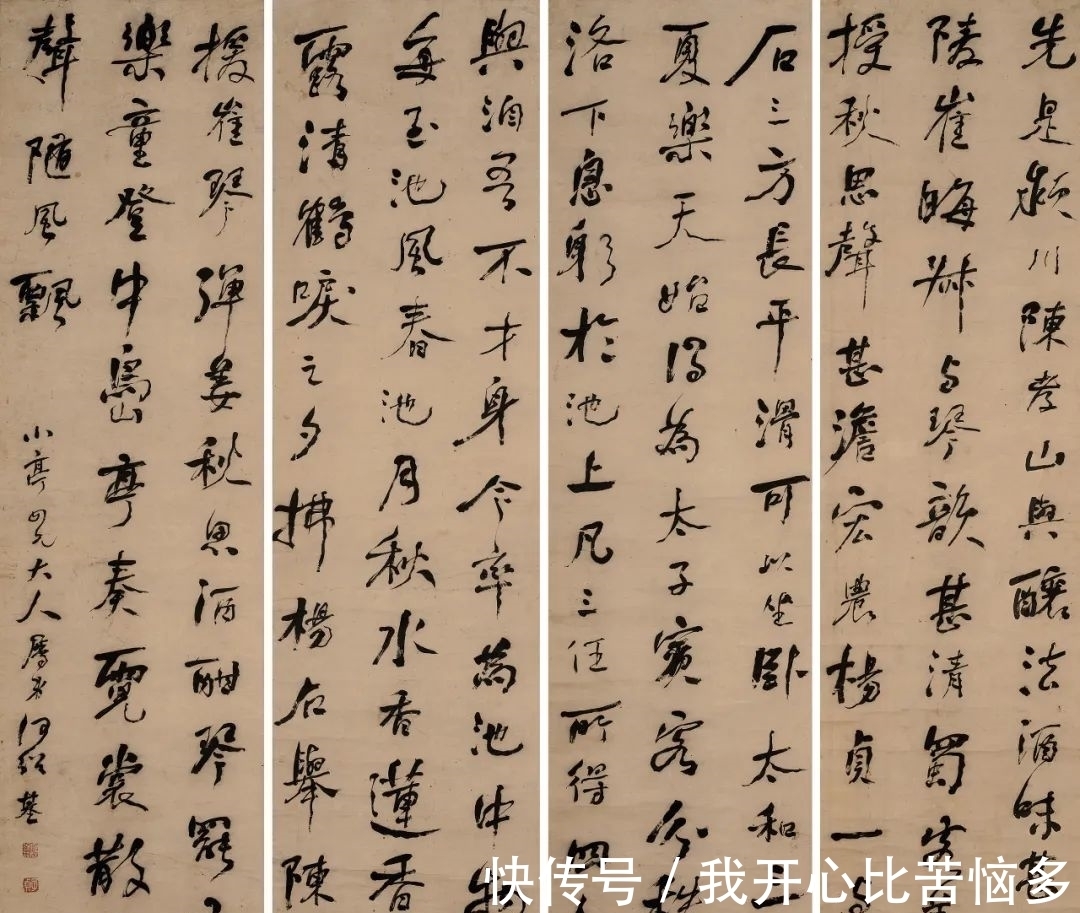 先是潁川陳孝山與釀法酒味甚
陵崔晦叔与琴韻甚清蜀客
授秋思聲甚澹宏農楊貞一与
石三方長平滑可以坐卧太和三
夏樂天始得為太子賓客分秩
洛下息躬於池上凡三任所得四
與洎吾不才身今率為池中物
每至池風春池月秋水香蓮香
露清鶴唳之夕拂楊石舉陳
援崔琴彈姜秋思酒酣琴罷
樂童登中島亭奏霓裳散
聲隨風飄
小亭四兄大人屬書何紹基
快传号/我开心比苦恼多